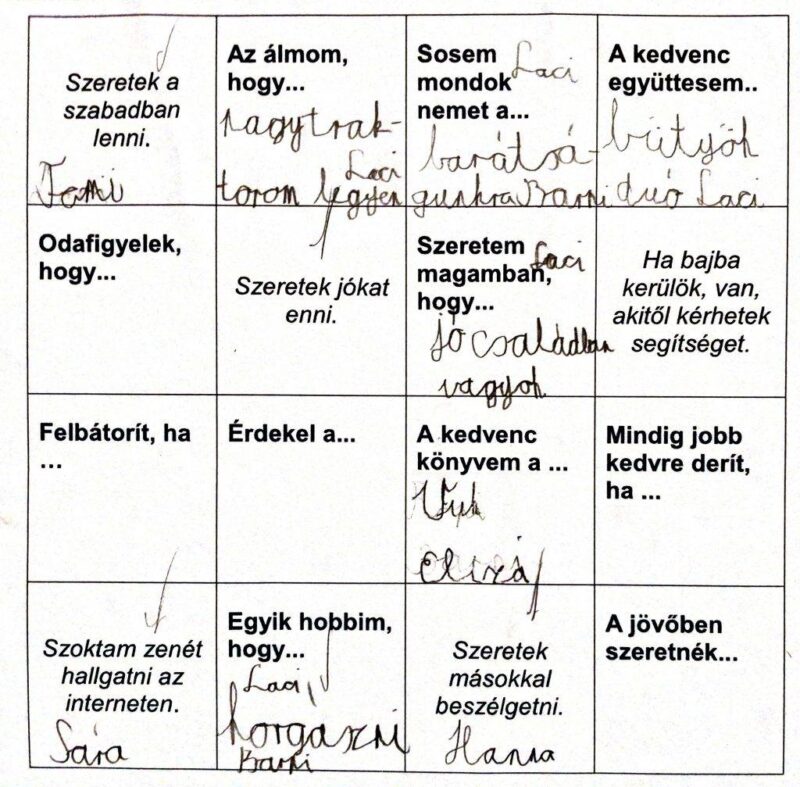 Szeretek a
szabadban
lenni.
Az álmom,
hogy...
nagytrak-
Laci
torom legyen
Sosem
mondok Laci
nemet a...
barátsá-
gunkra Barni
A kedvenc
együttesem..
bütyök
duó Laci
Odafigyelek,
hogy...
Szeretek jókat
enni.
Szeretem
magamban, Laci
hogy...
jó családban
vagyok
Ha bajba
kerülök, van,
akitől kérhetek
segítséget.
Felbátorít, ha
...
Érdekel a...
A kedvenc
könyvem a ...
Vuk
Eliza
Mindig jobb
kedvre derít,
ha ...
Szoktam zenét
hallgatni az
interneten.
Sára
Egyik hobbim,
hogy...
Laci
horgászni
Barni
Szeretek
másokkal
beszélgetni.
Hanna
A jövőben
szeretnék...